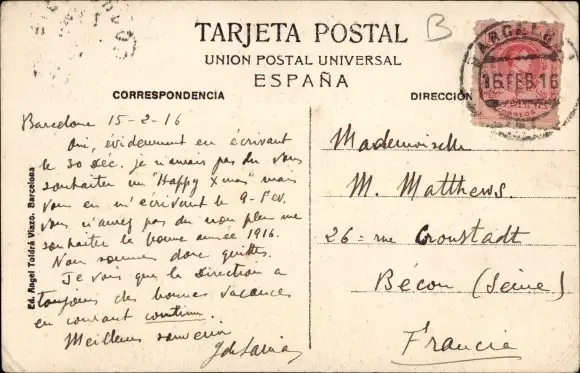 TARJETA POSTAL
UNION POSTAL UNIVERSAL
ESPAÑA
B
BARCELO
16 FEB 16
CORREOS
CORRESPONDENCIA
DIRECCIÓN
Barcelone 15-2-16
Oui, évidemment en écrivant
le 30 Déc. je n'aurais pas du vous
souhaiter un "Happy Xmas" mais
vous en m'écrivant le 9-Fev.
vous n'aurez pas du non plus me
souhaiter la bonne année 1916.
Nous sommes donc quittes.
Je vois que la Direction a
toujours des bonnes vacances
en courant continu.
Meilleurs souvenirs
Mademoiselle
M. Matthews.
26 = rue Cronstadt
Bécon (Seine)
Francia
Ed. Angel Toldrá Viazo. Barcelona